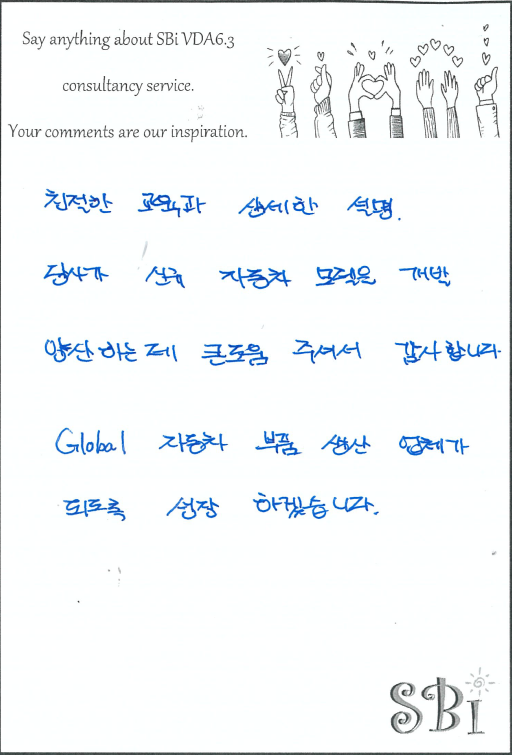 Say anything about SBi VDA6.3
consultancy service.
Your comments are our inspiration.
친절한 교육과 상세한 설명.
당사가 신규 자동차 모델을 개발
양산 하는데 큰도움 주셔서 감사 합니다.
Global 자동차 부품 생산 업체가
되도록 성장 하겠습니다.
SBi